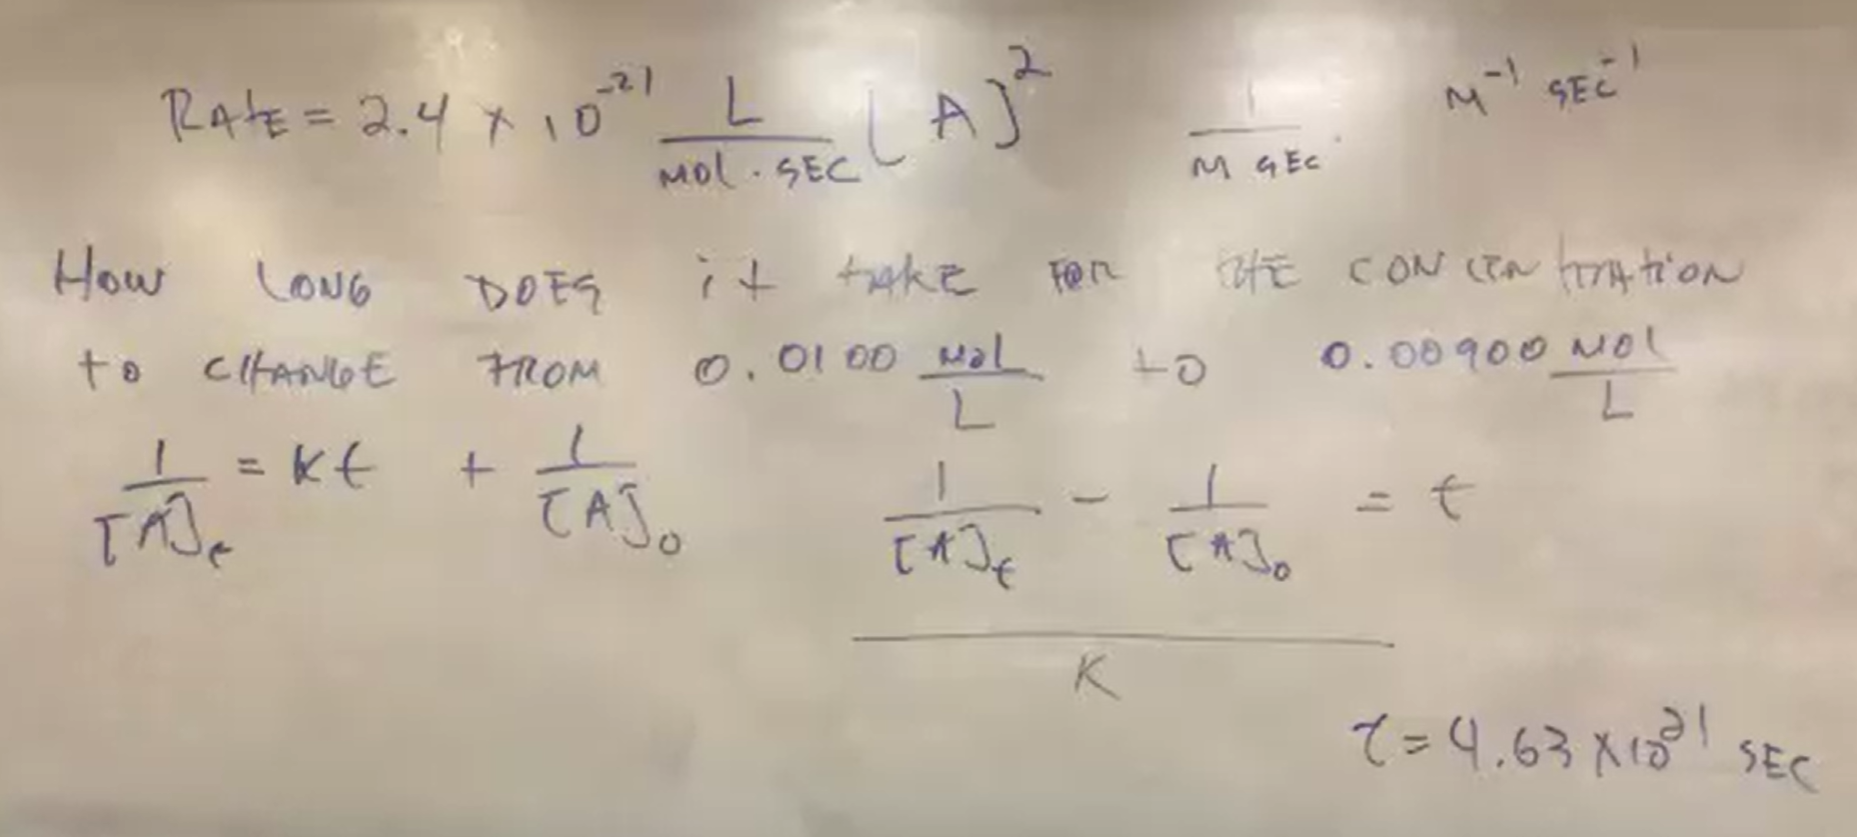 RATE = 2.4 × 10⁻²¹ L/MOL·SEC [A]² 1/M SEC M⁻¹ SEC⁻¹
HOW LONG DOES it tAKE FOR tHE CONCENTRATION
to CHANGE FROM 0.0100 MOL/L to 0.00900 MOL/L
1/[A]t = Kt + 1/[A]₀ (1/[A]t − 1/[A]₀)/K = t
t = 4.63 × 10²¹ SEC